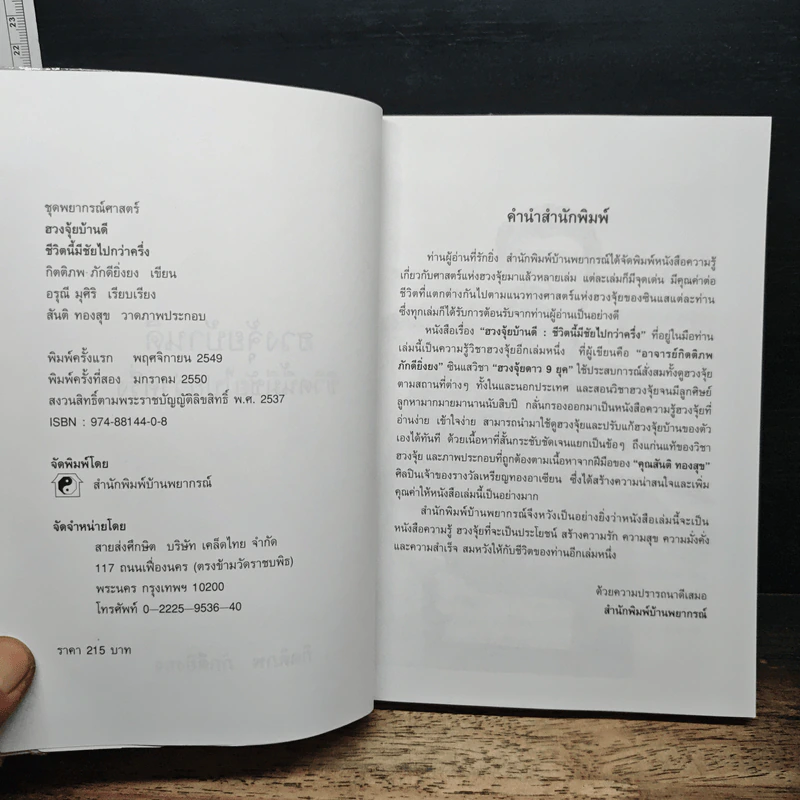 23
22
ชุดพยากรณ์ศาสตร์
ฮวงจุ้ยบ้านดี
ชีวิตนี้มีชัยไปกว่าครึ่ง
กิตติภพ ภักดียิ่งยง เขียน
อรุณี มุศิริ เรียบเรียง
สันติ ทองสุข วาดภาพประกอบ
พิมพ์ครั้งแรก พฤศจิกายน 2549
พิมพ์ครั้งที่สอง มกราคม 2550
สงวนสิทธิ์ตามพระราชบัญญัติลิขสิทธิ์ พ.ศ. 2537
ISBN : 974-88144-0-8
จัดพิมพ์โดย
สำนักพิมพ์บ้านพยากรณ์
จัดจำหน่ายโดย
สายส่งศึกษิต บริษัท เคล็ดไทย จำกัด
117 ถนนเฟื่องนคร (ตรงข้ามวัดราชบพิธ)
พระนคร กรุงเทพฯ 10200
โทรศัพท์ 0-2225-9536-40
ราคา 215 บาท
คำนำสำนักพิมพ์
ท่านผู้อ่านที่รักยิ่ง สำนักพิมพ์บ้านพยากรณ์ได้จัดพิมพ์หนังสือความรู้
เกี่ยวกับศาสตร์แห่งฮวงจุ้ยมาแล้วหลายเล่ม แต่ละเล่มก็มีจุดเด่น มีคุณค่าต่อ
ชีวิตที่แตกต่างกันไปตามแนวทางศาสตร์แห่งฮวงจุ้ยของซินแสแต่ละท่าน
ซึ่งทุกเล่มก็ได้รับการต้อนรับจากท่านผู้อ่านเป็นอย่างดี
หนังสือเรื่อง “ฮวงจุ้ยบ้านดี : ชีวิตนี้มีชัยไปกว่าครึ่ง” ที่อยู่ในมือท่าน
เล่มนี้เป็นความรู้วิชาฮวงจุ้ยอีกเล่มหนึ่ง ที่ผู้เขียนคือ “อาจารย์กิตติภพ
ภักดียิ่งยง” ซินแสวิชา “ฮวงจุ้ยดาว 9 ยุค” ใช้ประสบการณ์สั่งสมทั้งดูฮวงจุ้ย
ตามสถานที่ต่างๆ ทั้งในและนอกประเทศ และสอนวิชาฮวงจุ้ยจนมีลูกศิษย์
ลูกหามากมายมานานนับสิบปี กลั่นกรองออกมาเป็นหนังสือความรู้ฮวงจุ้ยที่
อ่านง่าย เข้าใจง่าย สามารถนำมาใช้ดูฮวงจุ้ยและปรับแก้ฮวงจุ้ยบ้านของตัว
เองได้ทันที ด้วยเนื้อหาที่สั้นกระชับชัดเจนแยกเป็นข้อๆ ถึงแก่นแท้ของวิชา
ฮวงจุ้ย และภาพประกอบที่ถูกต้องตามเนื้อหาจากฝีมือของ “คุณสันติ ทองสุข”
ศิลปินเจ้าของรางวัลเหรียญทองอาเซียน ซึ่งได้สร้างความน่าสนใจและเพิ่ม
คุณค่าให้หนังสือเล่มนี้เป็นอย่างมาก
สำนักพิมพ์บ้านพยากรณ์จึงหวังเป็นอย่างยิ่งว่าหนังสือเล่มนี้จะเป็น
หนังสือความรู้ ฮวงจุ้ยที่จะเป็นประโยชน์ สร้างความรัก ความสุข ความมั่งคั่ง
และความสำเร็จ สมหวังให้กับชีวิตของท่านอีกเล่มหนึ่ง
ด้วยความปรารถนาดีเสมอ
สำนักพิมพ์บ้านพยากรณ์